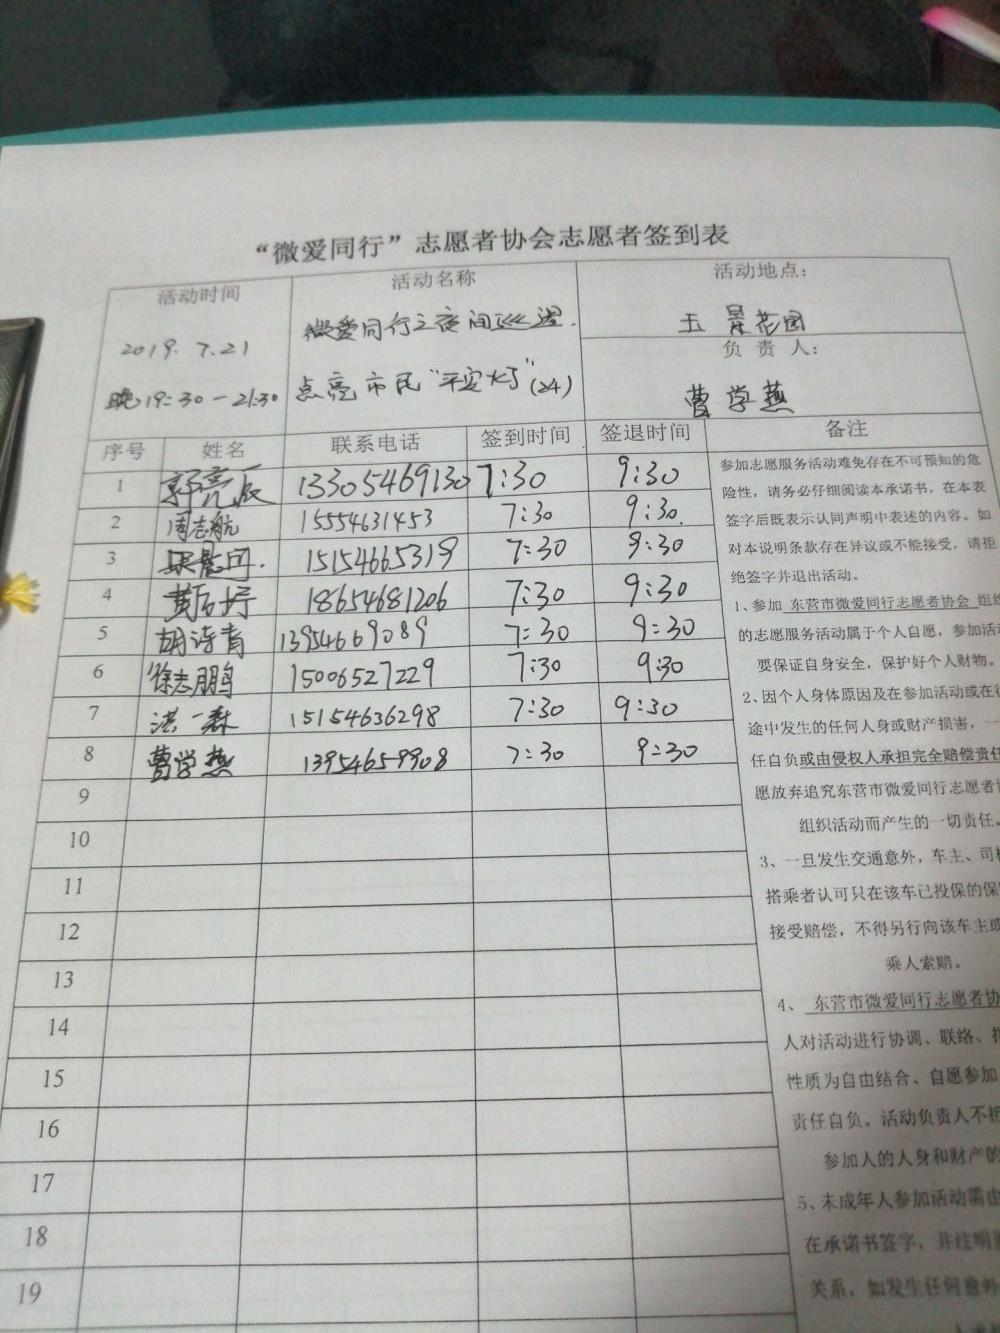 “微爱同行”志愿者协会志愿者签到表
活动时间
2019.7.21
晚19:30-21:30
活动名称
微爱同行之夜间巡逻.
点亮市民“平安灯”(24)
活动地点:
玉景花园
负责人:
曹学燕
序号 姓名 联系电话 签到时间 签退时间 备注
1 郭亮辰 13305469130 7:30 9:30
2 周志航 15554631453 7:30 9:30.
3 15154665319 7:30 9:30
4 黄 18654681206 7:30 9:30
5 胡诗青 13954669089 7:30 9:30
6 徐志鹏 15006527229 7:30 9:30
7 洪一森 15154636298 7:30 9:30
8 曹学燕 13954659908 7:30 9:30
9
10
11
12
13
14
15
16
17
18
19
参加志愿服务活动难免存在不可预知的危
险性，请务必仔细阅读本承诺书，在本表
签字后既表示认同声明中表述的内容。如
对本说明条款存在异议或不能接受，请拒
绝签字并退出活动。
1、参加 东营市微爱同行志愿者协会 组织
的志愿服务活动属于个人自愿，参加活动
要保证自身安全，保护好个人财物。
2、因个人身体原因及在参加活动或在往
途中发生的任何人身或财产损害，一
任自负或由侵权人承担完全赔偿责任
愿放弃追究东营市微爱同行志愿者协
组织活动而产生的一切责任。
3、一旦发生交通意外，车主、司机
搭乘者认可只在该车已投保的保
接受赔偿，不得另行向该车主或
乘人索赔。
4、 东营市微爱同行志愿者协
人对活动进行协调、联络、
性质为自由结合、自愿参加
责任自负。活动负责人不担
参加人的人身和财产的
5、未成年人参加活动需由
在承诺书签字，并注明
关系，如发生任何意外